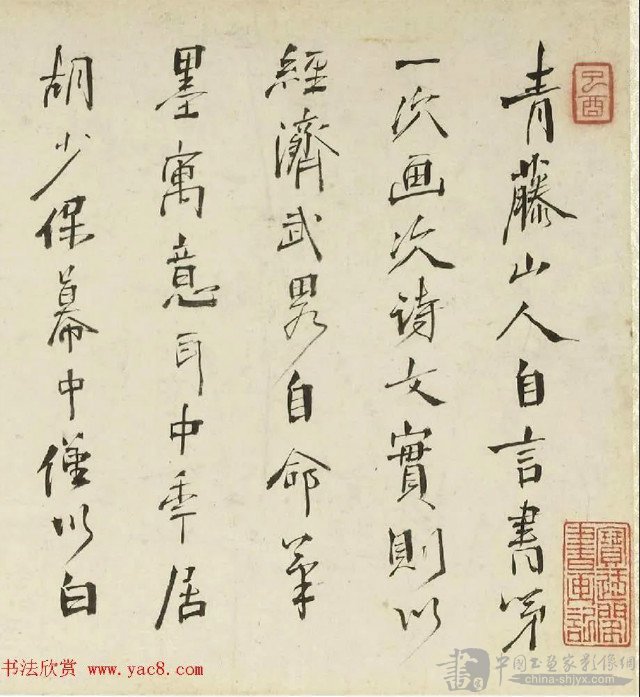 青藤山人自言書第
一次画次诗文實則以
經濟武畧自命筆
墨寓意耳中年居
胡少保幕中僅以白
書法欣赏 www.yac8.com
中国书画家影像網
china-shjyx.com